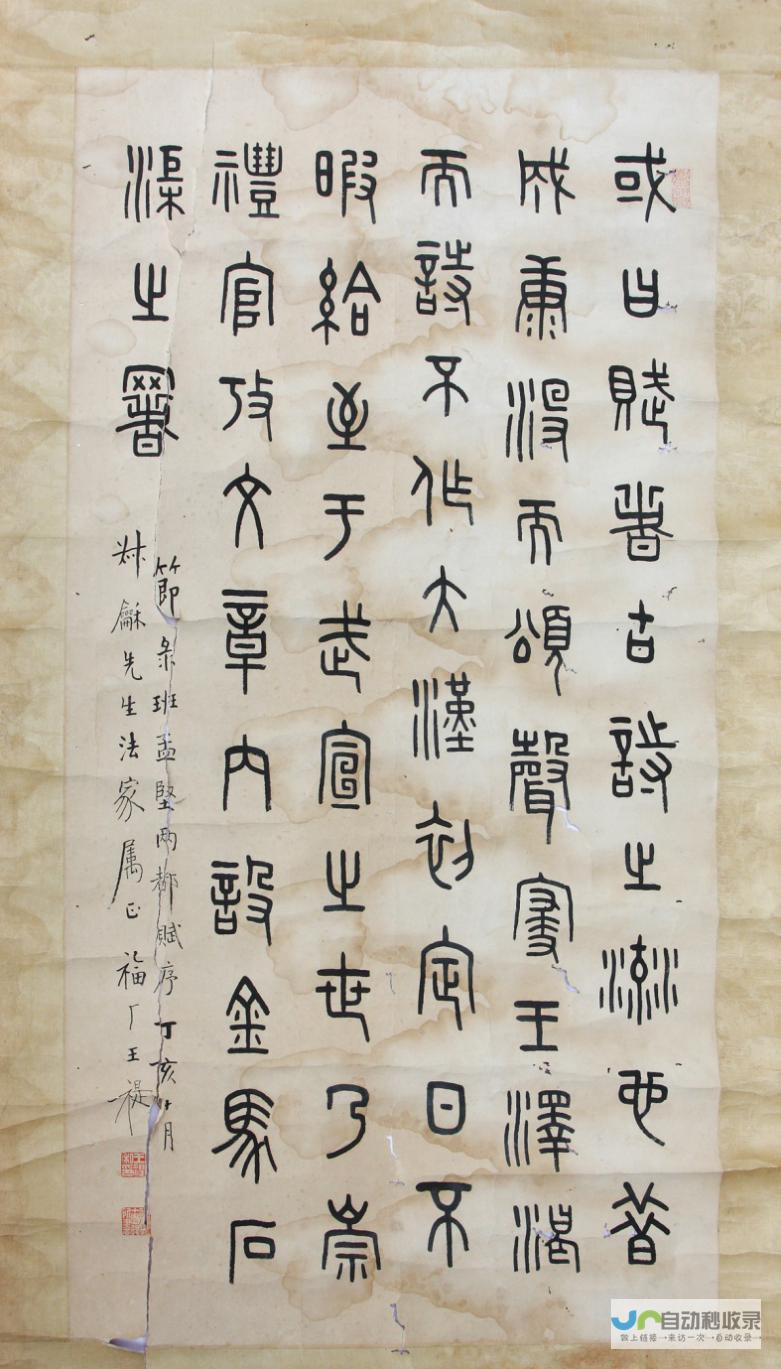 或曰賦者古詩之流也昔
成康沒而頌聲寑王澤竭
而詩不作大漢初定日不
暇給至于武宣之世乃崇
禮官攷文章內設金馬石
渠之署
節彔班孟堅兩都賦序丁亥月
叔龢先生法家属正福厂王禔
自动秒收录
做上链接→来访一次→自动收录→